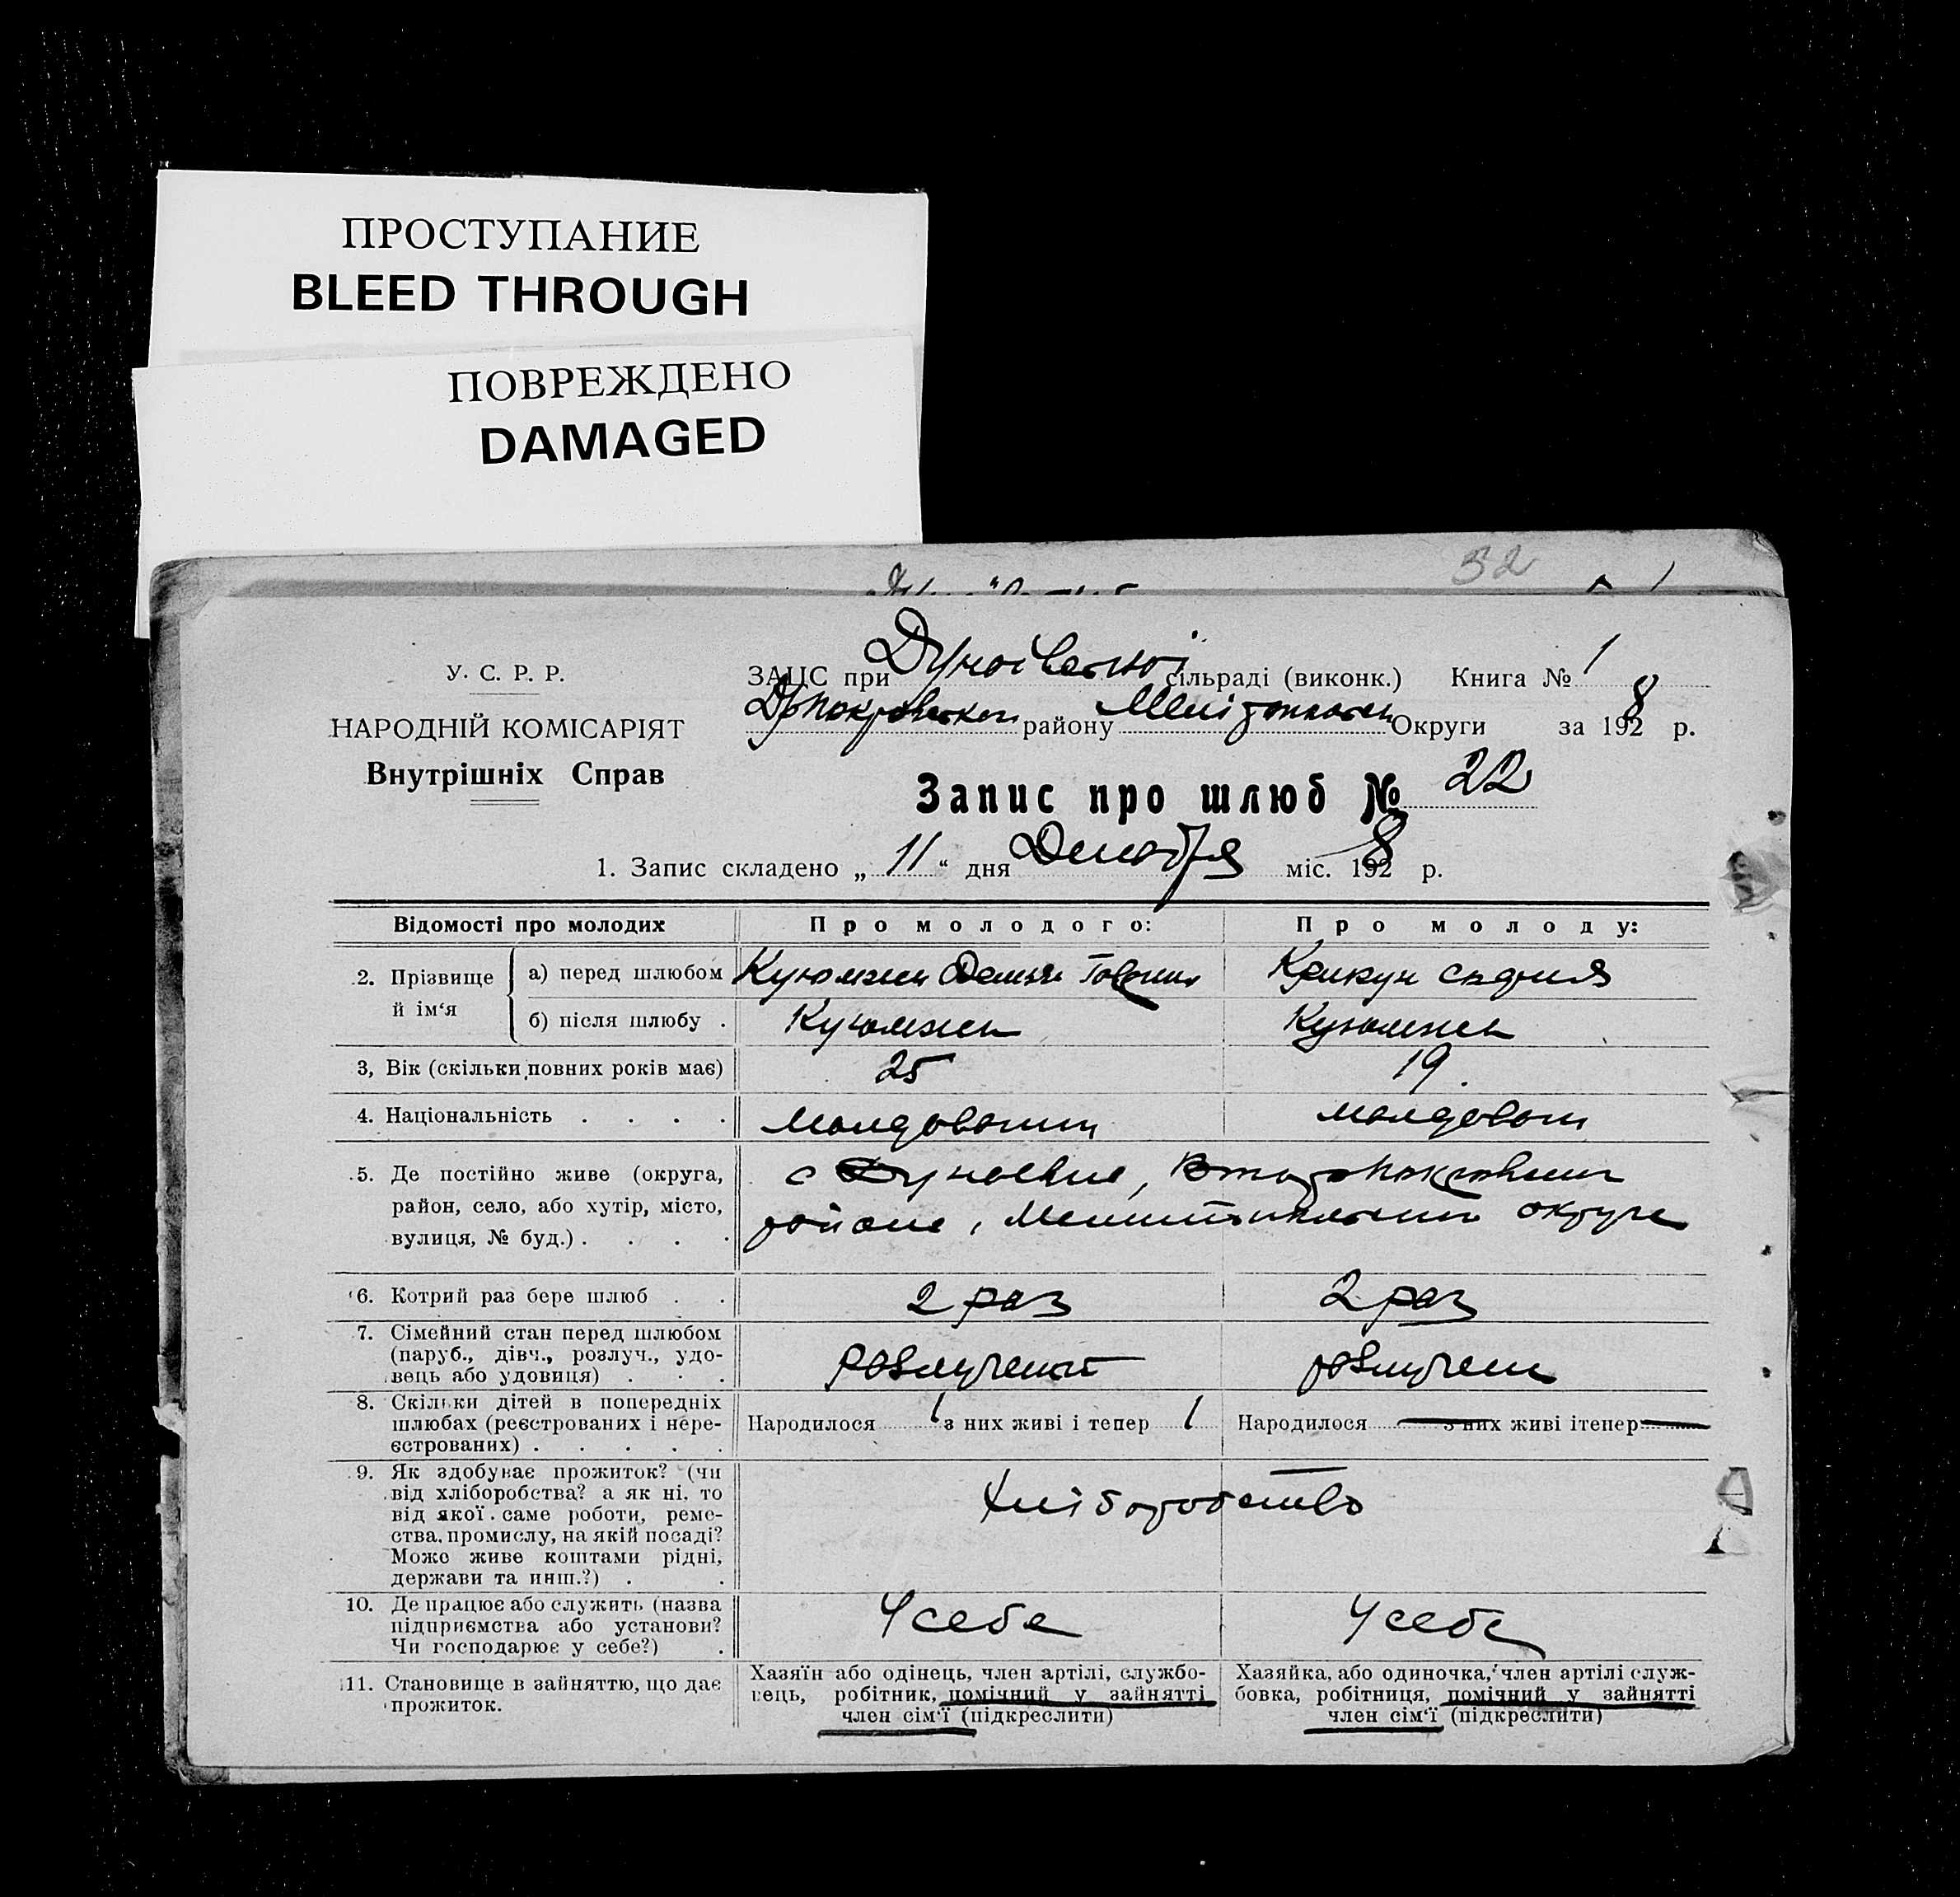 ПРОСТУПАНИЕ
BLEED THROUGH
ПОВРЕЖДЕНО
DAMAGED
32
У. С. Р. Р.
НАРОДНІЙ КОМІСАРІЯТ
Внутрішніх Справ
ЗАЦС при Дунаївській сільраді (виконк.) Книга № 1
району Округи за 1928 р.
Запис про шлюб № 22
1. Запис складено „ 11 “ дня Декабря міс. 1928 р.
Відомості про молодих
Про молодого:
Про молоду:
2. Прізвище й ім‘я
а) перед шлюбом
Куюмжи
Крикун
б) після шлюбу .
Куюмжи
Куюмжи
3, Вік (скільки повних років має)
25
19
4. Національність . . . .
молдованин
молдован
5. Де постійно живе (округа,
район, село, або хутір, місто,
вулиця, № буд.) . . . .
с Дунаевка, Второпокровский
района, Мелитопольский округа
6. Котрий раз бере шлюб . .
2 раз
2 раз
7. Сімейний стан перед шлюбом
(паруб., дівч., розлуч., удо-
вець або удовиця) . . .
розлучений
розлучен
8. Скільки дітей в попередніх
шлюбах (реєстрованих і нере-
єстрованих) . . . . .
Народилося 1 з них живі і тепер 1
Народилося — з них живі ітепер —
9. Як здобуває прожиток? (чи
від хліборобства? а як ні, то
від якої саме роботи, реме-
ства, промислу, на якій посаді?
Може живе коштами рідні,
держави та инш.?) . .
Хліборобство
10. Де працює або служить (назва
підприємства або установи?
Чи господарює у себе?) .
У себе
У себе
11. Становище в зайняттю, що дає
прожиток.
Хазяїн або одінець, член артілі, службо-
вець, робітник, помічний у зайнятті
член сім‘ї (підкреслити)
Хазяйка, або одиночка, член артілі служ-
бовка, робітниця, помічний у зайнятті
член сім‘ї (підкреслити)